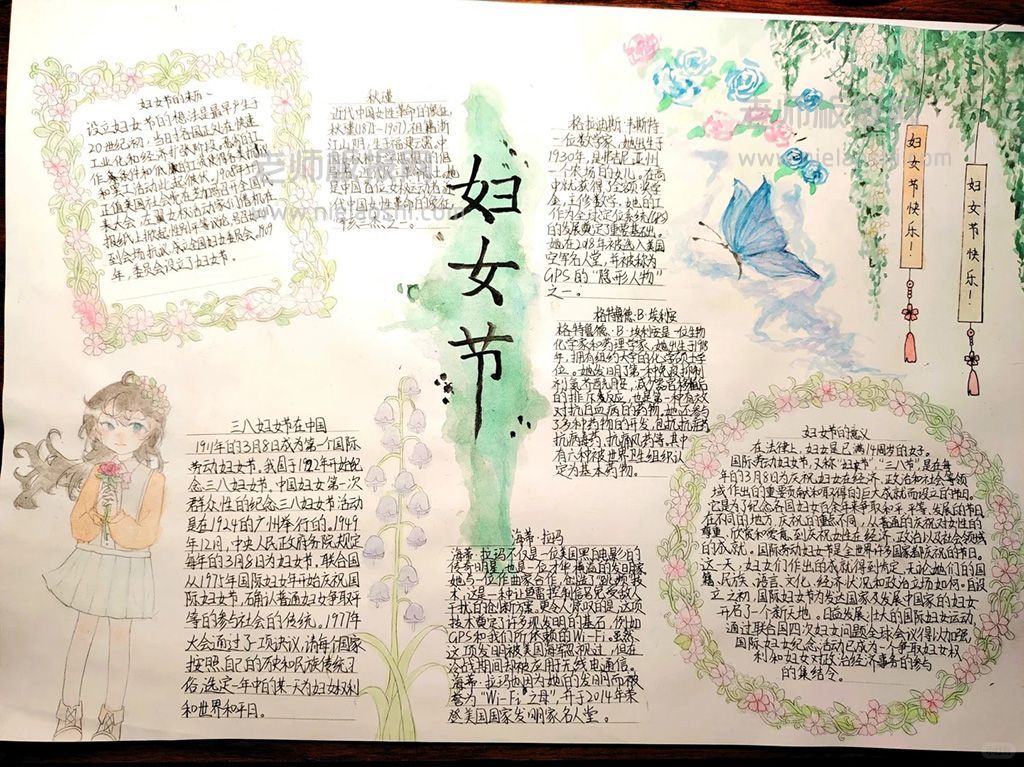 妇女节的来历
设立妇女节的想法是最早产生于
20世纪初,当时各国正处在快速
工业化和经济扩张阶段,恶劣的工
作条件和低廉的工资使得各类抗议
和罢工活动此起彼伏。1908年于
大会,在
到会场抗议,成立全国妇女委员会。1909
年,委员会设立了妇女节。
秋瑾
近代中国女性革命的象征,
秋瑾(1875-1907),祖籍浙
江山阴,生于福建
是中国首位女权运动者,近
代中国女性革命的象征
妇女节
格拉迪斯·韦斯特
一位数学家,她出生于
1930年,是弗吉尼亚州
一个农场的女儿。在高
中就获得了全额奖学
金,主修数学。她的工
作为全球定位系统(GPS)
的发展奠定了重要基础。
她在2018年被选入美国
空军名人堂,并被称为
GPS的“隐形人物”
之一。
妇女节快乐!
妇女节快乐!
格特鲁德·B·埃利安
格特鲁德·B·埃利安是一位生物
化学家和药理学家,她出生于1918
年,拥有纽约大学的化学硕士学
位。她发明了第一种免疫抑制
的排斥反应,也是第一种有效
对抗白血病的药物。她还参与
了多种药物的开发,包括抗疟药
抗病毒药、抗痛风药等,其中
有六种被世界卫生组织认
定为基本药物。
三八妇女节在中国
1911年的3月8日成为第一个国际
劳动妇女节。我国于1922年开始纪
念三八妇女节。中国妇女第一次
群众性的纪念三八妇女节活动
是在1924的广州举行的。1949
年12月,中央人民政府务院规定
每年的3月8日为妇女节。联合国
从1975年国际妇女年开始庆祝国
际妇女节,确认普通妇女争取平
等的参与社会的传统。1977年
大会通过了一项决议,请每个国家
按照自己的历史和民族传统习
俗,选定一年中的某一天为妇女权利
和世界和平日。
海蒂·拉玛
海蒂·拉玛不仅是一位美国黑白电影的
传奇明星,也是一位才华横溢的发明家
她与一位作曲家合作,创造了“跳频”技
术,这是一种让鱼雷控制信号免受敌人
干扰的创新方案。更令人惊叹的是,这项
技术奠定了许多现发明的基石,例如
GPS和我们所依赖的Wi-Fi。虽然
这项发明被美国海军忽视过,但在
冷战期间却被应用于无线电通信。
海蒂·拉玛也因为她的发明而被
誉为“Wi-Fi之母”,并于2014年荣
登美国国家发明家名人堂。
妇女节的意义
在法律上,妇女是已满14周岁的女子。
国际劳动妇女节,又称“妇女节”、“三八节”是在每
年的3月8日为庆祝妇女在经济、政治和社会等领
域作出的重要贡献和取得的巨大成就而设立的节日。
它是为了纪念各国妇女百余年来争取和平、平等、发展的节日。
在不同的地方,庆祝的重点不同,从普通的庆祝对女性的
尊重、欣赏和爱意,到庆祝女性在经济、政治以及社会领域
的成就。国际劳动妇女节是全世界许多国家都庆祝的节日。
这一天,妇女们作出的成就得到肯定,无论她们的国
籍、民族、语言、文化、经济状况和政治立场如何。自设
立之初,国际妇女节为发达国家及发展中国家的妇女
开启了一个新天地。日益发展壮大的国际妇女运动,
通过联合国四次妇女问题全球会议得以加强,
国际妇女纪念活动已成为一个争取妇女权
利和妇女对政治经济事务的参与
的集结令。
老师板报网
www.nielaoshi.com
老师板报网
www.nielaoshi.com